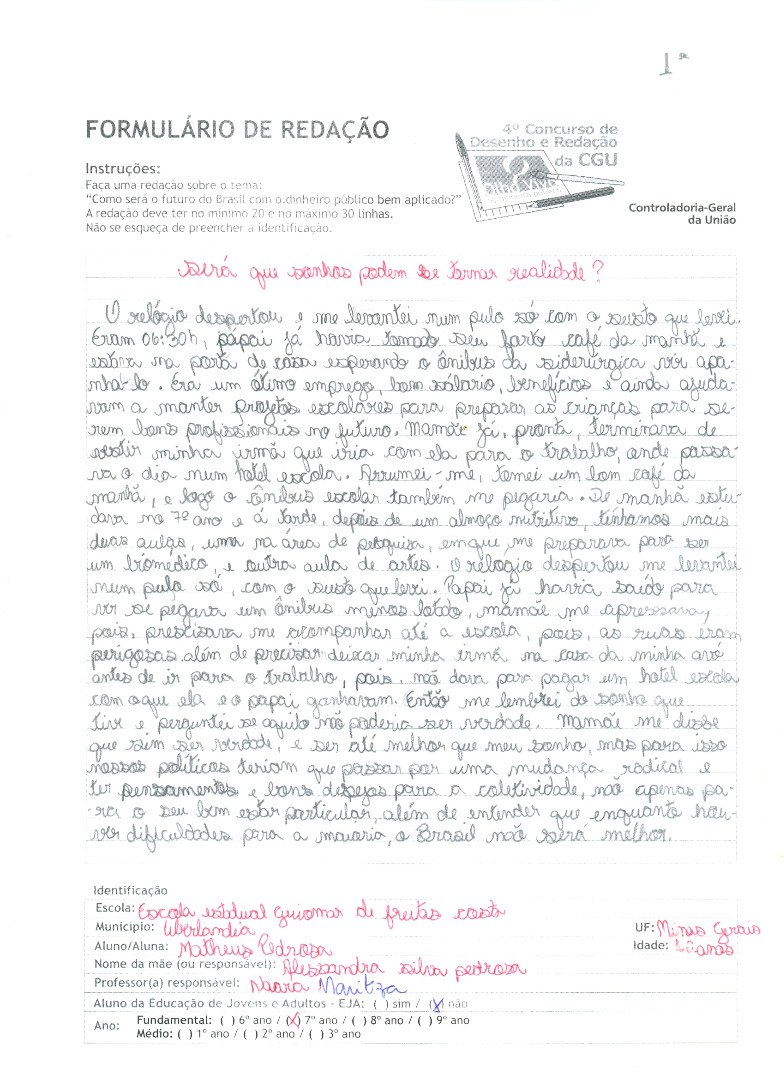 1ª
FORMULÁRIO DE REDAÇÃO
4º Concurso de
Desenho e Redação
da CGU
Olho Vivo
Controladoria-Geral
da União
Instruções:
Faça uma redação sobre o tema:
"Como será o futuro do Brasil com o dinheiro público bem aplicado?"
A redação deve ter no mínimo 20 e no máximo 30 linhas.
Não se esqueça de preencher a identificação.
Será que sonhos podem se tornar realidade?
O relógio despertou e me levantei num pulo só com o susto que levei.
Eram 06:30h, papai já havia tomado seu farto café da manhã e
estava na porta de casa esperando o ônibus da siderúrgica vir apa-
nhá-lo. Era um ótimo emprego, bom sálario, benefícios e ainda ajuda-
vam a manter projetos escolares para preparar as crianças para se-
rem bons profissionais no futuro. Mamãe já, pronta, terminava de
vestir minha irmã que iria com ela para o trabalho, onde passa-
va o dia num hotel escola. Arrumei-me, tomei um bom café da
manhã, e logo o ônibus escolar também me pegaria. De manhã estu-
dava no 7º ano e á tarde, depois de um almoço nutritivo, tinhamos mais
duas aulas, uma na área de pesquisa, em que, me preparava para ser
um biomedico, e outra aula de artes. O relogio despertou me levantei
num pulo só, com o susto que levei. Papai já havia saido para
vir se pegava um ônibus menos lotado, mamãe me apressava,
pois, prescisava me acompanhar até a escola, pois, as ruas eram
perigosas além de precisar deixar minha irmã na casa da minha avó
antes de ir para o trabalho, pois, não dava para pagar um hotel escola
com o que ela e o papai ganhavam. Então me lembrei do sonho que
tive e perguntei se aquilo não poderia ser verdade. Mamãe me disse
que sim ser verdade, e ser até melhor que meu sonho, mas para isso
nossos políticos teriam que passar por uma mudança radical e
ter pensamentos e bons desejos para a coletividade, não apenas pa-
ra o seu bem estar particular, além de entender que enquanto hou-
ver dificuldades para a maioria, o Brasil não será melhor.
Identificação
Escola: Escola estadual Guiomar de freitas costa
Município: Uberlandia UF: Minas Gerais
Aluno/Aluna: Matheus Pedrosa Idade: anos
Nome da mãe (ou responsável): Alessandra silva pedrosa
Professor(a) responsável: Naara Maritza
Aluno da Educação de Jovens e Adultos - EJA: ( ) sim / (x) não
Ano: Fundamental: ( ) 6º ano / (x) 7º ano / ( ) 8º ano / ( ) 9º ano
Médio: ( ) 1º ano / ( ) 2º ano / ( ) 3º ano